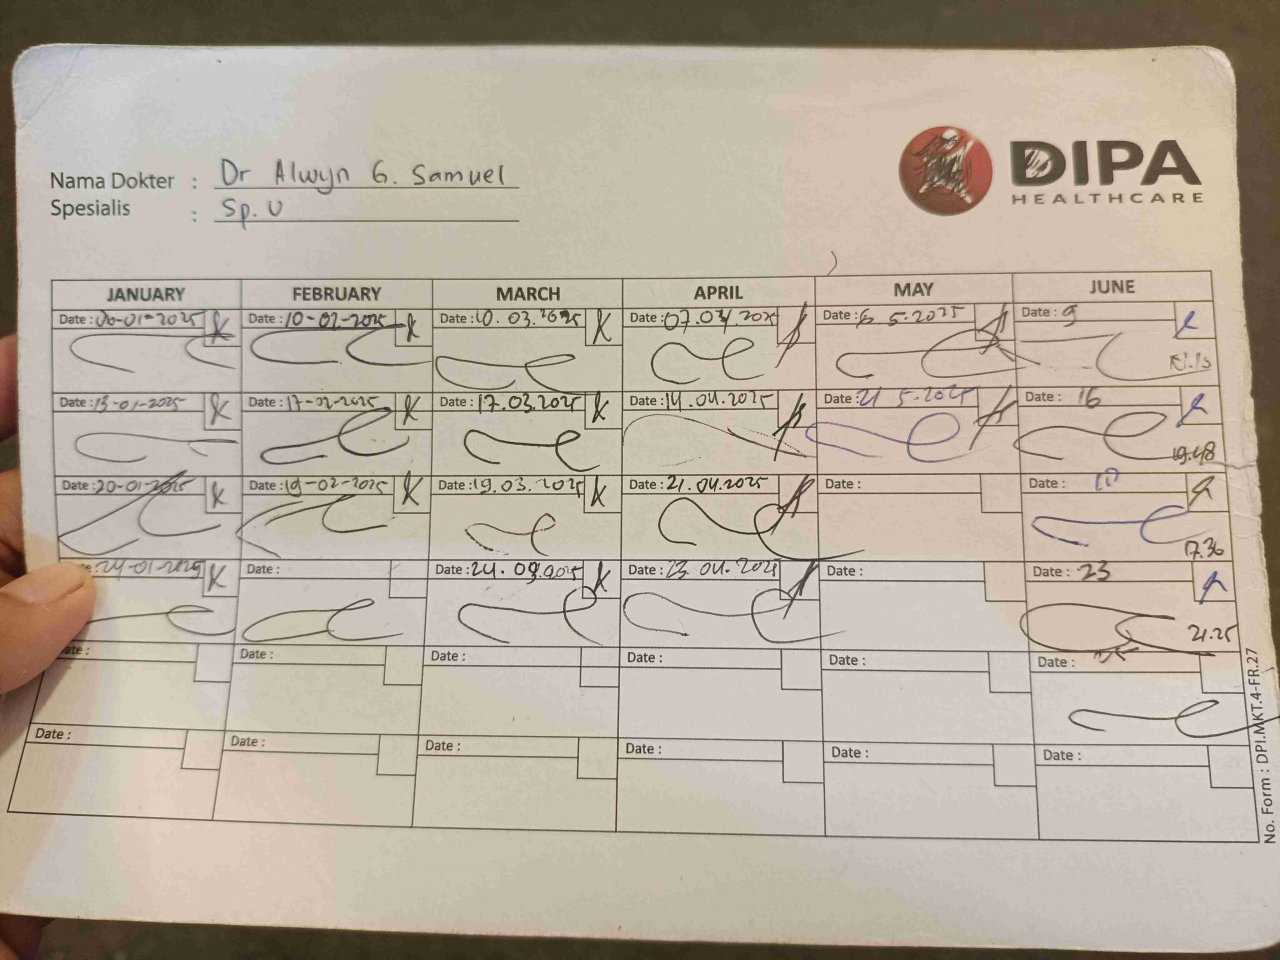 Nama Dokter : Dr Alwyn G. Samuel
Spesialis : Sp. U
DIPA
HEALTHCARE
JANUARY FEBRUARY MARCH APRIL MAY JUNE
Date : 06-01-2025 Date : 10-02-2025 Date : 10.03.2025 Date : 07.04.2025 Date : 6 5.2025 Date : 9
Date : 13-01-2025 Date : 17-02-2025 Date : 17.03.2025 Date : 14.04.2025 Date : 21 5.2025 Date : 16
19.48
Date : 20-01-2025 Date : 19-02-2025 Date : 19.03.2025 Date : 21.04.2025 Date : Date :
17.36
24-01-2025 Date : Date : 24.03.2025 Date : 04.2025 Date : Date : 23
21.25
Date : Date : Date : Date : Date :
Date : Date : Date : Date : Date : Date :
No. Form : DPI.MKT.4-FR.27